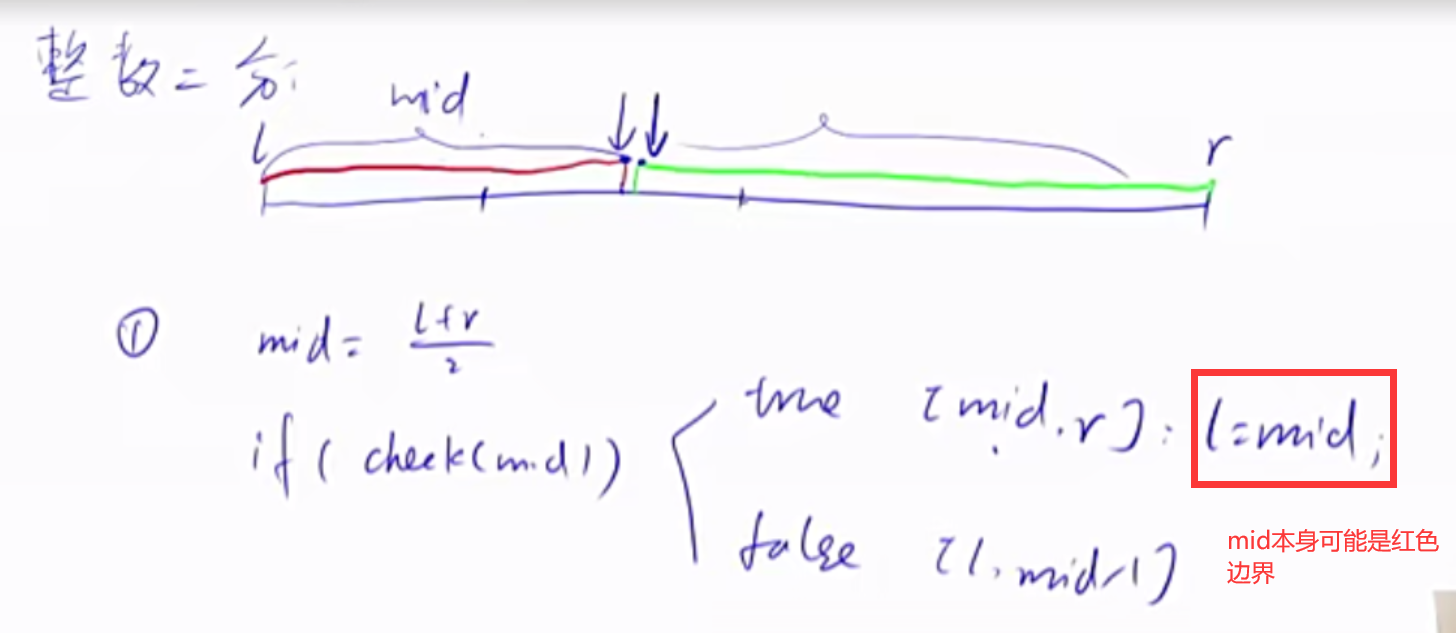 整数二分
mid
l
r
① mid = (l+r)/2
if ( check(mid) )
true [mid, r] : l=mid;
false [l, mid-1]
mid本身可能是红色
边界